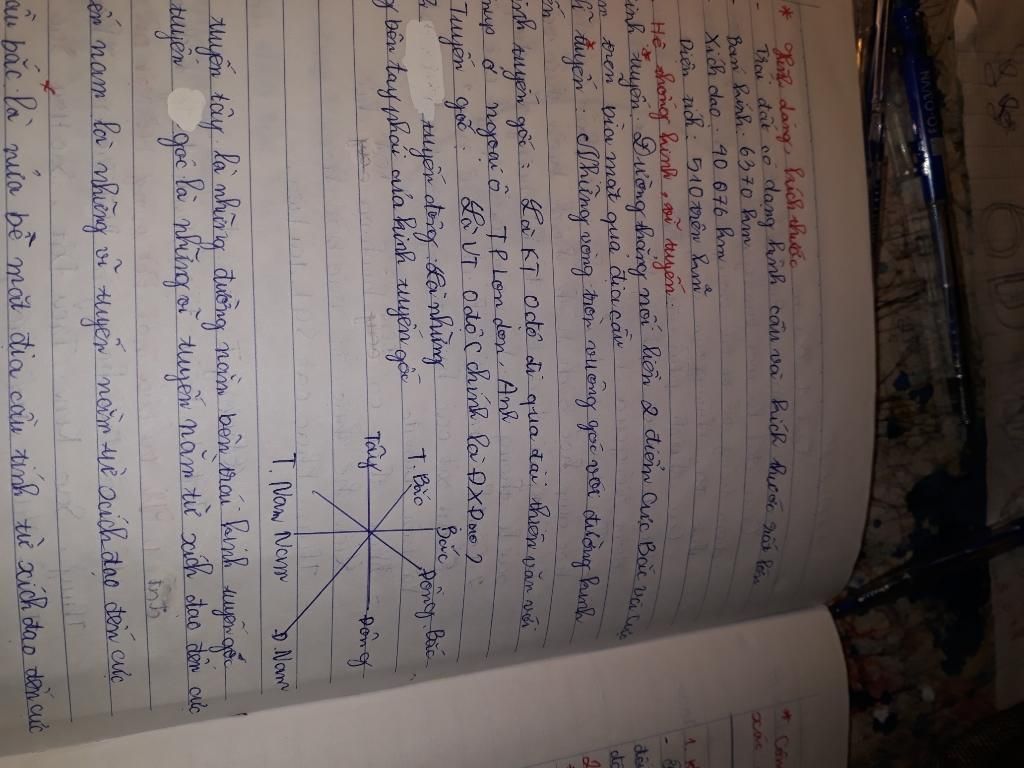 * Hình dáng, kích thước
- Trái đất có dạng hình cầu và kích thước rất lớn
- Bán kính: 6370 km
Xích đao: 40 076 km
Diện tích: 510 triệu km²
* Hệ thống kinh, vĩ tuyến
inh tuyến: Đường thẳng nối liền 2 điểm Cực Bắc và
trên bìa mặt quả địa cầu
ĩ tuyến: Những vòng tròn vuông góc với đường kinh
inh tuyến gốc: Là KT O độ đi qua đài thiên văn
ở ngoại ô TP Lon don Anh
Tuyến gốc: Là VT O độ C chính là ĐXĐạo?
tuyến đông là những
bên tay phải của kinh tuyến gốc
T. Bắc
Bắc
Đông Bắc
Tây
Đông
T. Nam
Nam
Đ. Nam
tuyến tây là những đường nằm bên trái kinh tuyến gốc
tuyến gốc là những vĩ tuyến nằm từ xích đạo đến cực
ến nam là những vĩ tuyến nằm từ xích đạo đến cực
bắc là nửa bề mặt địa cầu tính từ xích đạo đến cực
* Côn
xác
1.
2